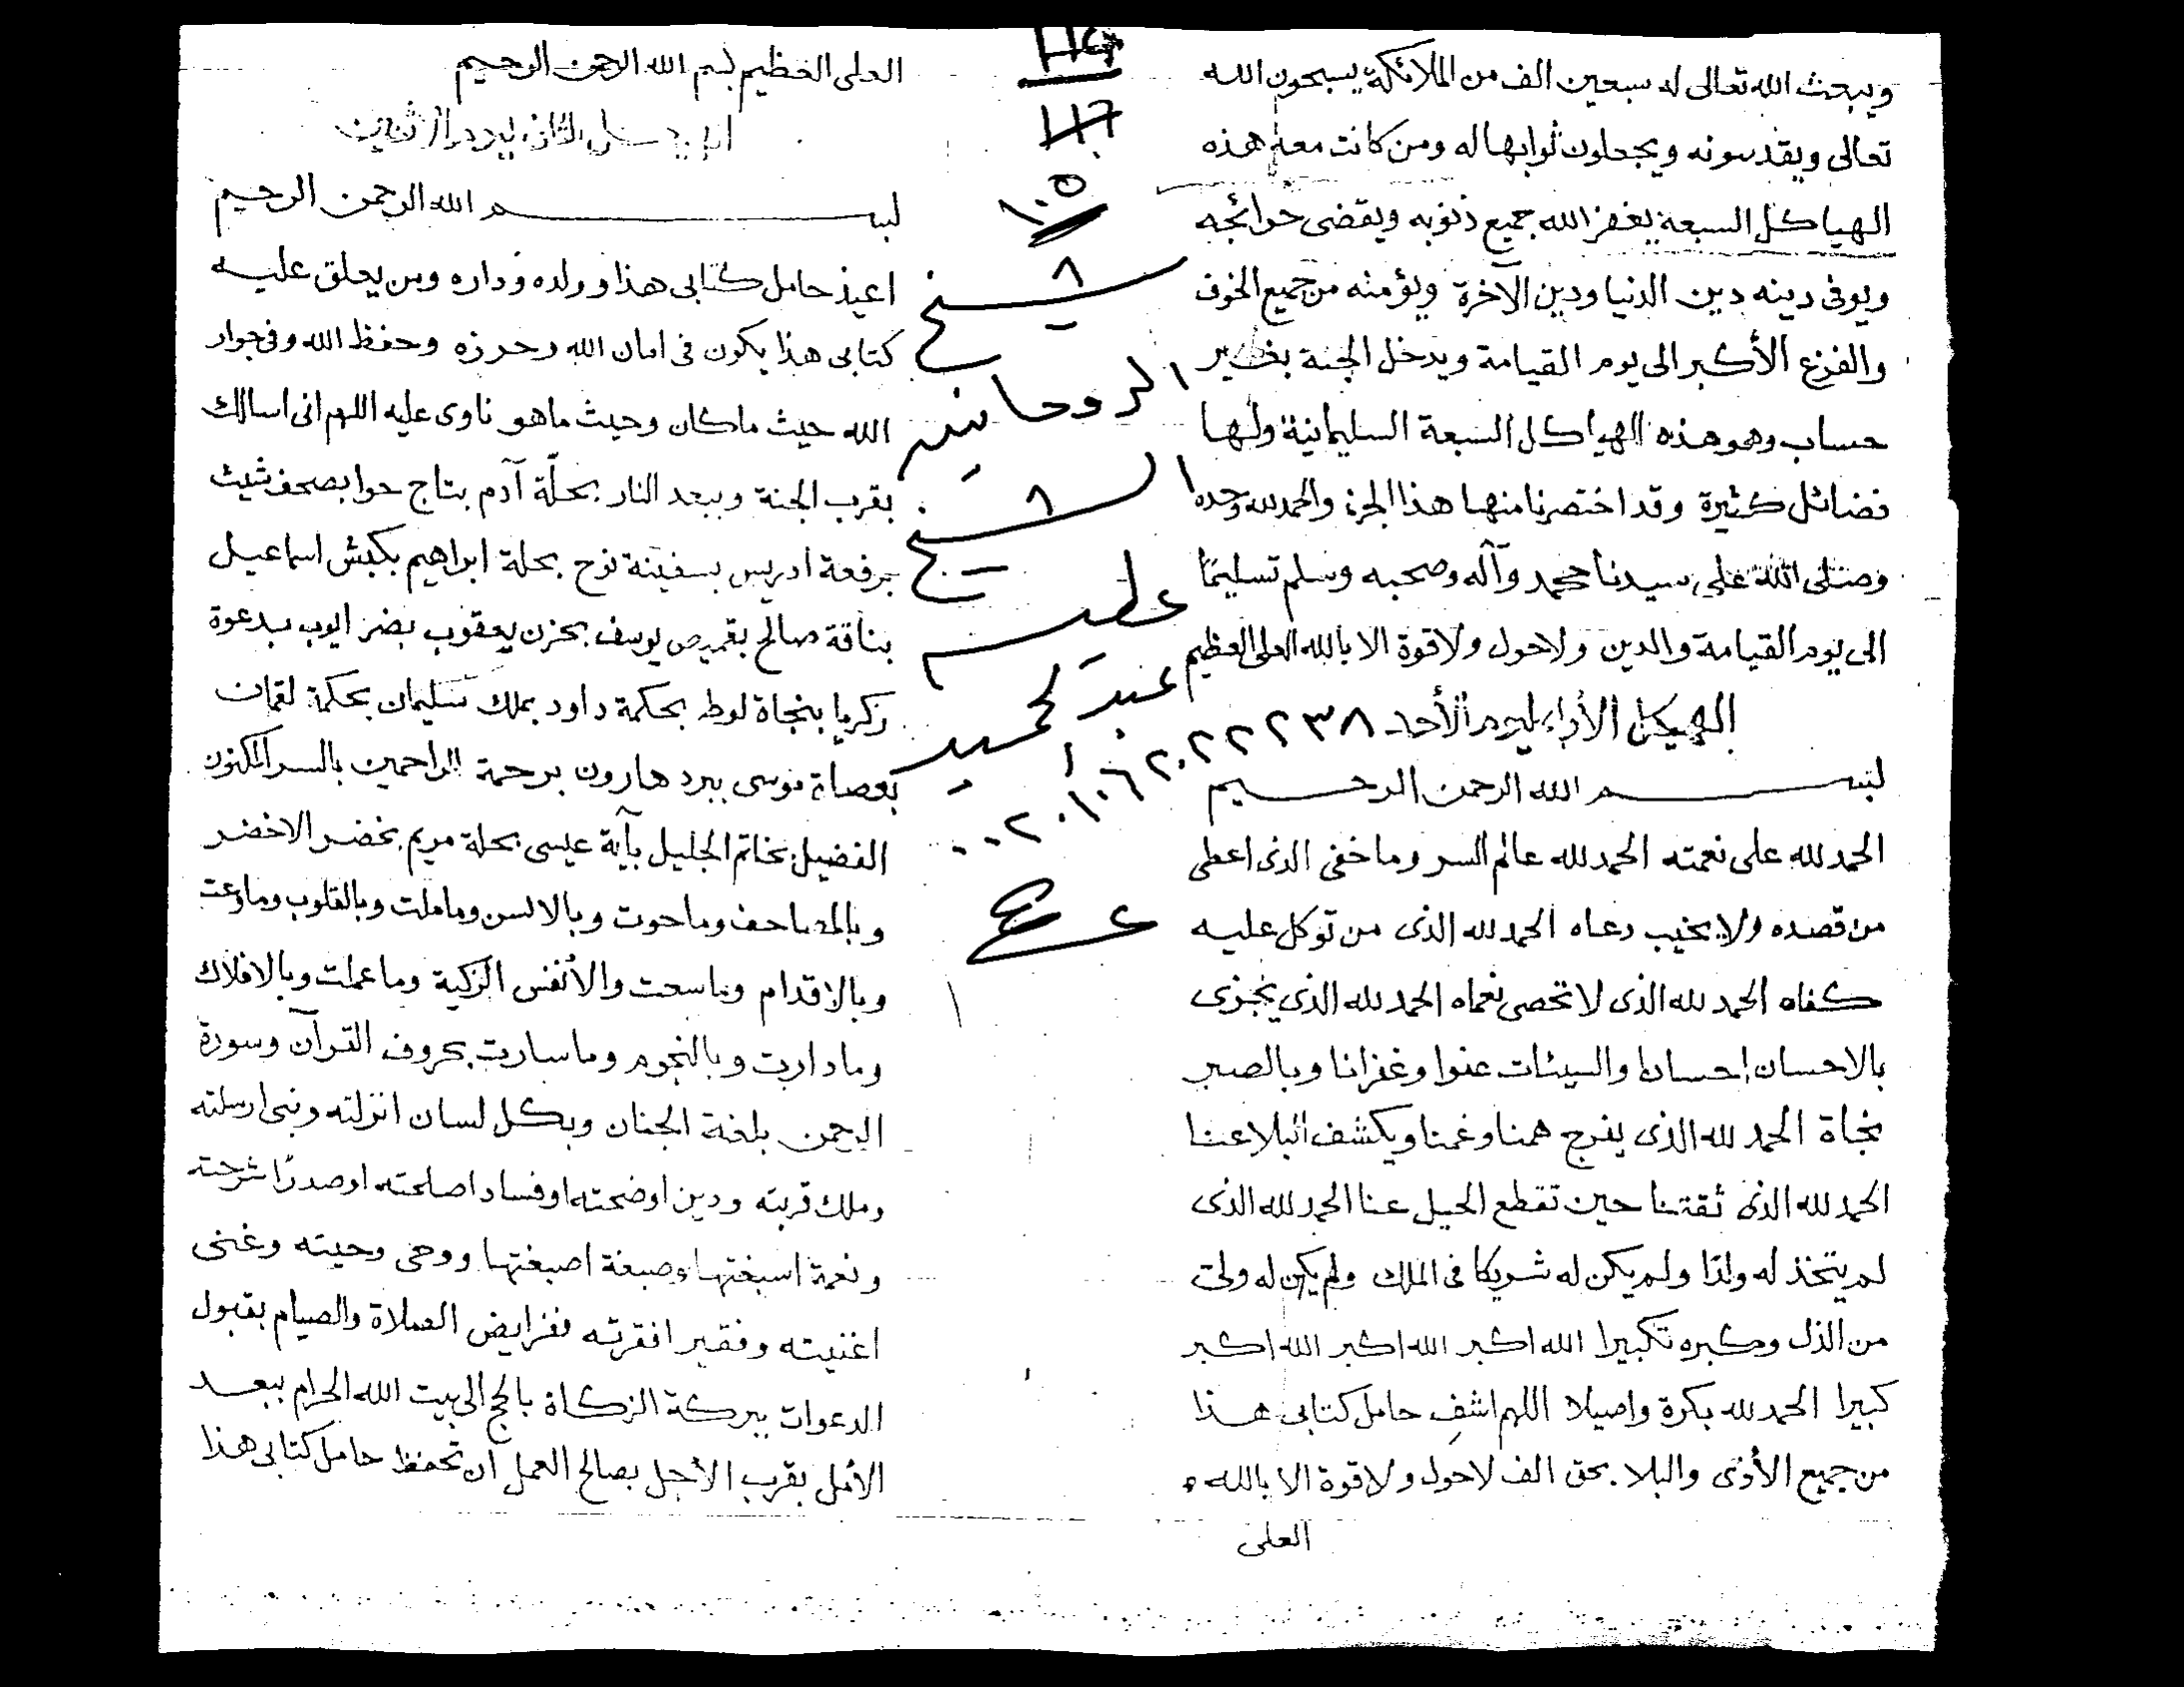 ويبعث الله تعالى له سبعين الف من الملائكة يسبحون الله
تعالى ويقدسونه ويجعلون ثوابها له ومن كانت معه هذه
الهياكل السبعة يغفر الله جميع ذنوبه ويقضى حوائجه
ويوفى دينه دين الدنيا ودين الآخرة ويؤمنه من جميع الخوف
والفزع الأكبر الى يوم القيامة ويدخل الجنة بغير
حساب وهو هذه الهياكل السبعة السليمانية ولها
فضائل كثيرة وقد اختصرنا منها هذا الجزء والحمد لله وحده
وصلى الله على سيدنا محمد وآله وصحبه وسلم تسليمًا
الى يوم القيامة والدين ولا حول ولا قوة الا بالله العلى العظيم
الهيكل الأول ليوم الأحد
لبسم الله الرحمن الرحيم
الحمد لله على نعمته الحمد لله عالم السر وما خفى الذى اعطى
من قصده ولا يخيب دعاه الحمد لله الذى من توكل عليه
كفاه الحمد لله الذى لا تحصى نعماه الحمد لله الذى يجزى
بالاحسان إحسانا والسيئات عفوا وغفرانا وبالصبر
نجاة الحمد لله الذى يفرج همنا وغمنا ويكشف البلا عنا
الحمد لله الذى ثقتنا حين تقطع الحيل عنا الحمد لله الذى
لم يتخذ له ولدًا ولم يكن له شريكا فى الملك ولم يكن له ولى
من الذل وكبره تكبيرا الله اكبر الله اكبر الله اكبر
كبيرا الحمد لله بكرة واصيلا اللهم اشفِ حامل كتابى هذا
من جميع الأذى والبلا بحق الف لا حول ولا قوة الا بالله
العلى
١١٦
١٠٥
٨
شيخ
الروحانيه
٨
الشيخ
عطيه
عبد الحميد
٠٠٢٠١٠٦٢٠٢٢٢٣٨
العلى العظيم بسم الله الرحمن الرحيم
الهيكل الثانى ليوم الاثنين
بسم الله الرحمن الرحيم
اعيذ حامل كتابى هذا وولده وداره ومن يعلق عليه
كتابى هذا يكون فى امان الله وحرزه وحفظ الله وفى جوار
الله حيث ما كان وحيث ما هو ناوى عليه اللهم انى اسالك
بقرب الجنة وببعد النار بحلّة آدم بتاج حوا بصحف شيث
برفعة ادريس بسفينة نوح بحلة ابراهيم بكبش اسماعيل
بناقة صالح بقميص يوسف بحزن يعقوب بضر ايوب بدعوة
زكريا بنجاة لوط بحكمة داود بملك سليمان بحكمة لقمان
بعصاة موسى ببرد هارون برحمة الراحمين بالسر المكنون
الفضيل بخاتم الجليل بآية عيسى بحلة مريم بخضر الاخضر
وبالمصاحف وما حوت وبالالسن وما ملت وبالقلوب وما وعت
وبالاقدام وما سعت والأنفس الزكية وما عملت وبالافلاك
وما دارت وبالنجوم وما سارت بحروف القرآن وسورة
الرحمن بلغة الجنان وبكل لسان انزلته ونبى ارسلته
وملك قربته ودين اوضحته او فساد اصلحته او صدرًا شرحته
ونعمة اسبغتها وصبغة اصبغتها ووحى وحيته وغنى
اغنيته وفقير افقرته بفرايض الصلاة والصيام بقبول
الدعوات ببركة الزكاة بالحج الى بيت الله الحرام ببعد
الأمل بقرب الأجل بصالح العمل ان تحفظ حامل كتابى هذا